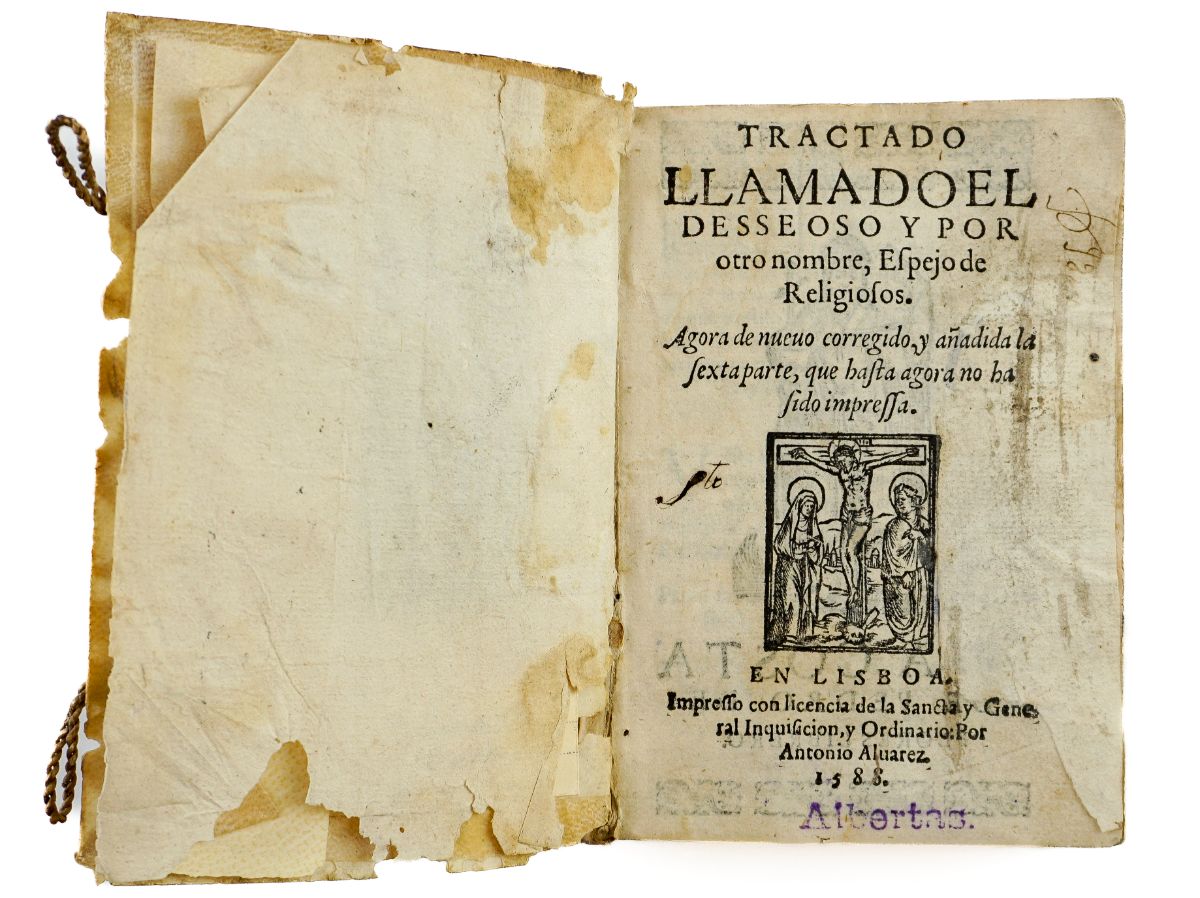 TRACTADO
LLAMADO EL
DESSEOSO Y POR
otro nombre, Eſpejo de
Religioſos.
Agora de nueuo corregido, y añadida la
ſexta parte, que haſta agora no ha
ſido impreſſa.
EN LISBOA.
Impreſſo con licencia de la Sancta y Gene-
ral Inquiſicion, y Ordinario: Por
Antonio Aluarez.
1588.
Albertas.